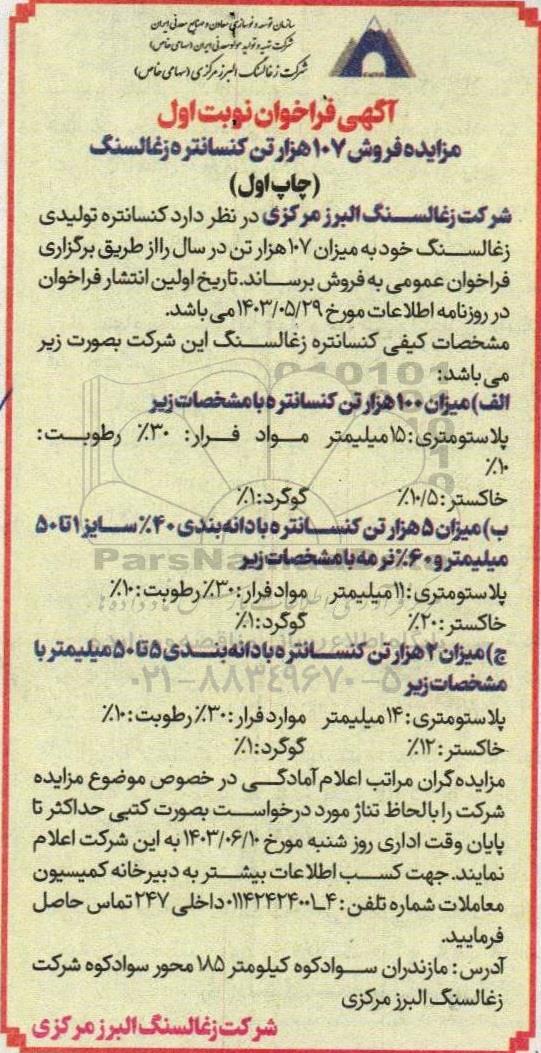 سازمان توسعه و نوسازی معادن و صنایع معدنی ایران
شرکت تهیه و تولید مواد معدنی ایران (سهامی خاص)
شرکت زغالسنگ البرز مرکزی (سهامی خاص)
آگهی فراخوان نوبت اول
مزایده فروش ۱۰۷ هزار تن کنسانتره زغالسنگ
(چاپ اول)
شرکت زغالسنگ البرز مرکزی در نظر دارد کنسانتره تولیدی
زغالسنگ خود به میزان ۱۰۷ هزار تن در سال را از طریق برگزاری
فراخوان عمومی به فروش برساند. تاریخ اولین انتشار فراخوان
در روزنامه اطلاعات مورخ ۱۴۰۳/۰۵/۲۹ می باشد.
مشخصات کیفی کنسانتره زغالسنگ این شرکت بصورت زیر
می باشد:
الف) میزان ۱۰۰ هزار تن کنسانتره با مشخصات زیر
پلاستومتری: ۱۵ میلیمتر مواد فرار: ۳۰٪ رطوبت:
۱۰٪
خاکستر: ۱۰/۵٪ گوگرد: ۱٪
ب) میزان ۵ هزار تن کنسانتره با دانه بندی ۴۰٪ سایز ۱ تا ۵۰
میلیمتر و ۶۰٪ نرمه با مشخصات زیر
پلاستومتری: ۱۱ میلیمتر مواد فرار: ۳۰٪ رطوبت: ۱۰٪
خاکستر: ۲۰٪ گوگرد: ۱٪
ج) میزان ۲ هزار تن کنسانتره با دانه بندی ۵ تا ۵۰ میلیمتر با
مشخصات زیر
پلاستومتری: ۱۴ میلیمتر موارد فرار: ۳۰٪ رطوبت: ۱۰٪
خاکستر: ۱۲٪ گوگرد: ۱٪
مزایده گران مراتب اعلام آمادگی در خصوص موضوع مزایده
شرکت را با لحاظ تناژ مورد درخواست بصورت کتبی حداکثر تا
پایان وقت اداری روز شنبه مورخ ۱۴۰۳/۰۶/۱۰ به این شرکت اعلام
نمایند. جهت کسب اطلاعات بیشتر به دبیرخانه کمیسیون
معاملات شماره تلفن: ۴ـ۰۱۱۴۲۴۲۴۰۰۱ داخلی ۲۴۷ تماس حاصل
فرمایید.
آدرس: مازندران سوادکوه کیلومتر ۱۸۵ محور سوادکوه شرکت
زغالسنگ البرز مرکزی
شرکت زغالسنگ البرز مرکزی
۰۲۱-۸۸۳۴۹۶۷۰-۵